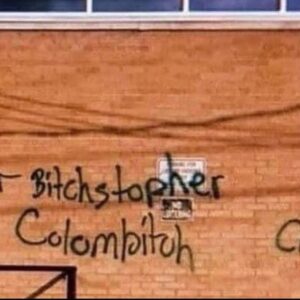 Bitchstopher
Colombitch
NO
LOITERING